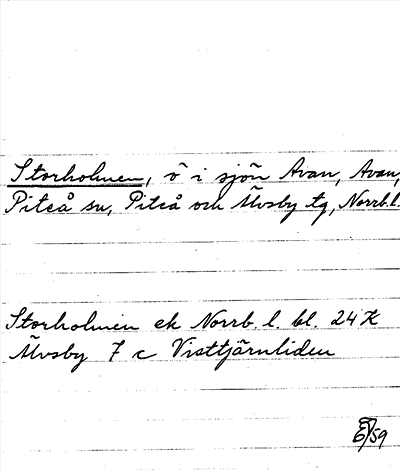 Storholmen, ö i sjön Avan, Avan,
Piteå sn, Piteå och Älvsby tg, Norrb.l.
Storholmen ek Norrb. l. bl. 24 K
Älvsby 7 c Visttjärnliden
/59